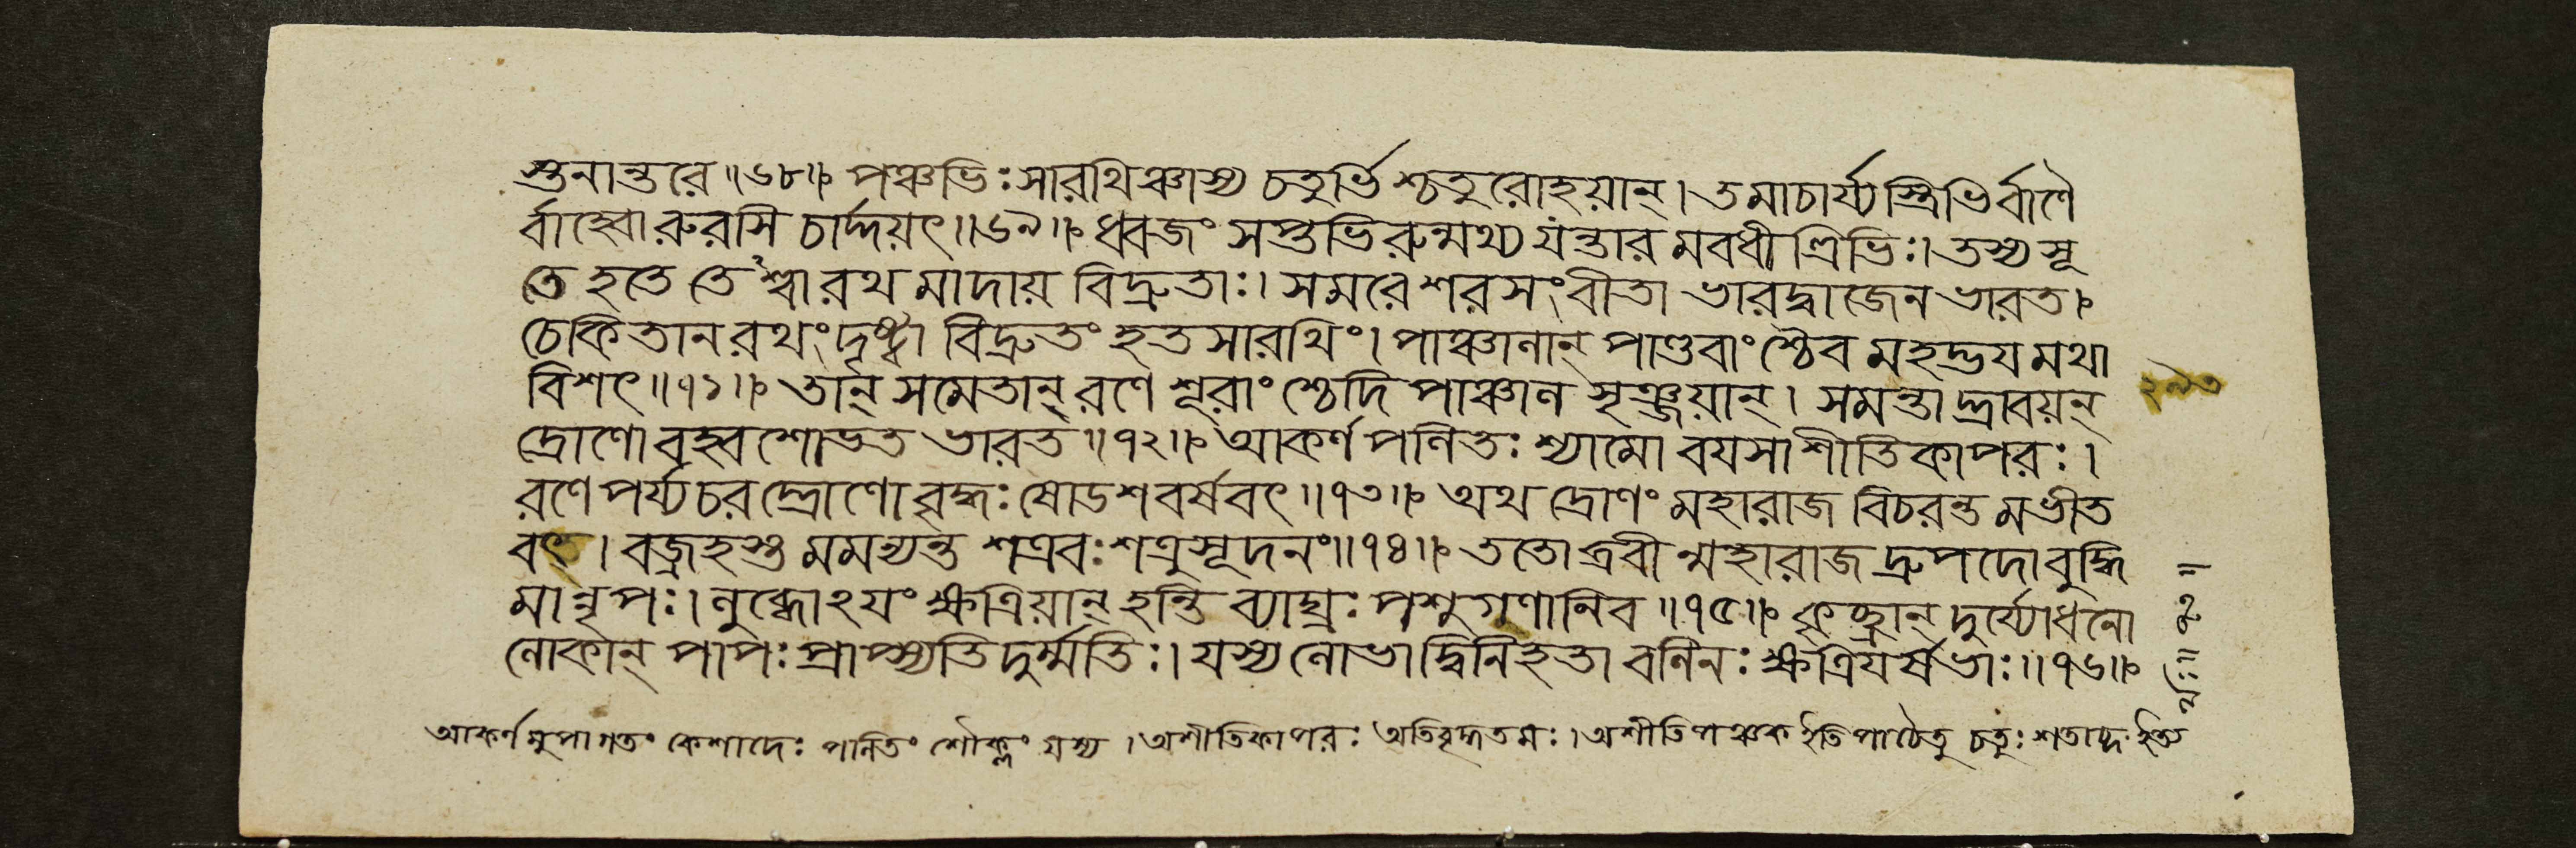 স্তনান্তরে॥৬৮॥ পঞ্চভিঃ সারথিঞ্চাস্য চতুর্ভিশ্চতুরোহয়ান্। তমাচার্য্যস্ত্রিভির্বাণৈ
র্বাহ্বোরুরসি চার্দ্দয়ৎ॥৬৯॥ ধ্বজং সপ্তভিরুন্মথ্য যন্তারমবধীত্রিভিঃ। তস্য সূ
তে হতে তেশ্বারথমাদায় বিদ্রুতাঃ। সমরে শরসংবীতা ভারদ্বাজেন ভারত।
চেকিতানরথং দৃষ্ট্বা বিদ্রুতং হতসারথিং। পাঞ্চানান্ পাণ্ডবাংশ্চৈব মহদ্ভযমথা
বিশৎ॥৭১॥ তান্ সমেতান্ রণে শূরাংশ্চেদিপাঞ্চানসৃঞ্জয়ান্। সমন্তাদ্দ্রাবয়ন্
দ্রোণো বহ্বশোভত ভারত॥৭২॥ আকর্ণপনিতঃ শ্যামো বযসাশীতিকাপরঃ।
রণে পর্য্যচরদ্দ্রোণো বৃদ্ধঃ ষোডশবর্ষবৎ॥৭৩॥ অথ দ্রোণং মহারাজ বিচরন্তমভীত
বৎ। বজ্রহস্তমমন্যন্ত শত্রবঃ শত্রুসূদনং॥৭৪॥ ততোব্রবীন্মহারাজ দ্রুপদো বুদ্ধি
মান্নৃপঃ। নুব্ধোঽযং ক্ষত্রিয়ান্ হন্তি ব্যাঘ্রঃ পশুগণানিব॥৭৫॥ কৃচ্ছ্রান্ দুর্য্যোধনো
নোকান্ পাপঃ প্রাপ্স্যতি দুর্ম্মতিঃ। যস্য নোভাদ্বিনিহতা বনিনঃ ক্ষত্রিযর্ষভাঃ॥৭৬॥
আকর্ণমুপাগতং কেশাদেঃ পানিতং শৌক্ল্যং যস্য। অশীতিকাপরঃ অতিবৃদ্ধতমঃ। অশীতিপঞ্চক ইতি পাঠেতু চতুঃশতাব্দ